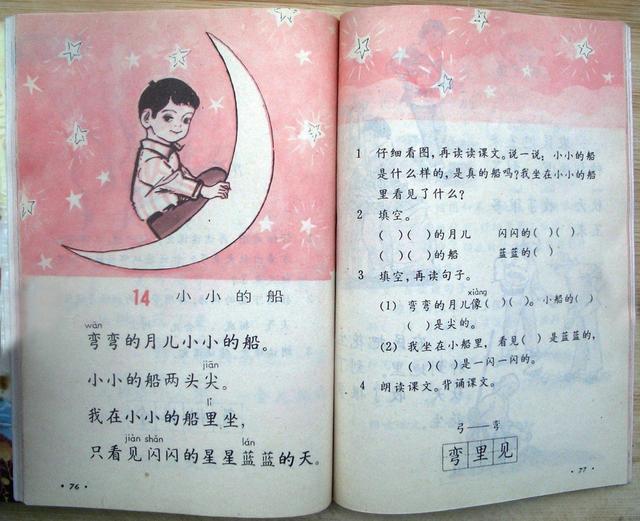 14 小小的船
wān
弯弯的月儿小小的船。
jiān
小小的船两头尖。
lǐ
我在小小的船里坐，
jiàn shǎn lán
只看见闪闪的星星蓝蓝的天。
· 76 ·
1 仔细看图，再读读课文。说一说：小小的船
是什么样的，是真的船吗？我坐在小小的船
里看见了什么？
2 填空。
（ ）（ ）的月儿 闪闪的（ ）（ ）
（ ）（ ）的船 蓝蓝的（ ）
3 填空，再读句子。
xiàng
（1）弯弯的月儿像（ ）（ ）。小船的（ ）
（ ）是尖的。
（2）我坐在小船里，看见（ ）是蓝蓝的，
（ ）（ ）是一闪一闪的。
4 朗读课文。背诵课文。
弓——弯
弯里见
· 77 ·